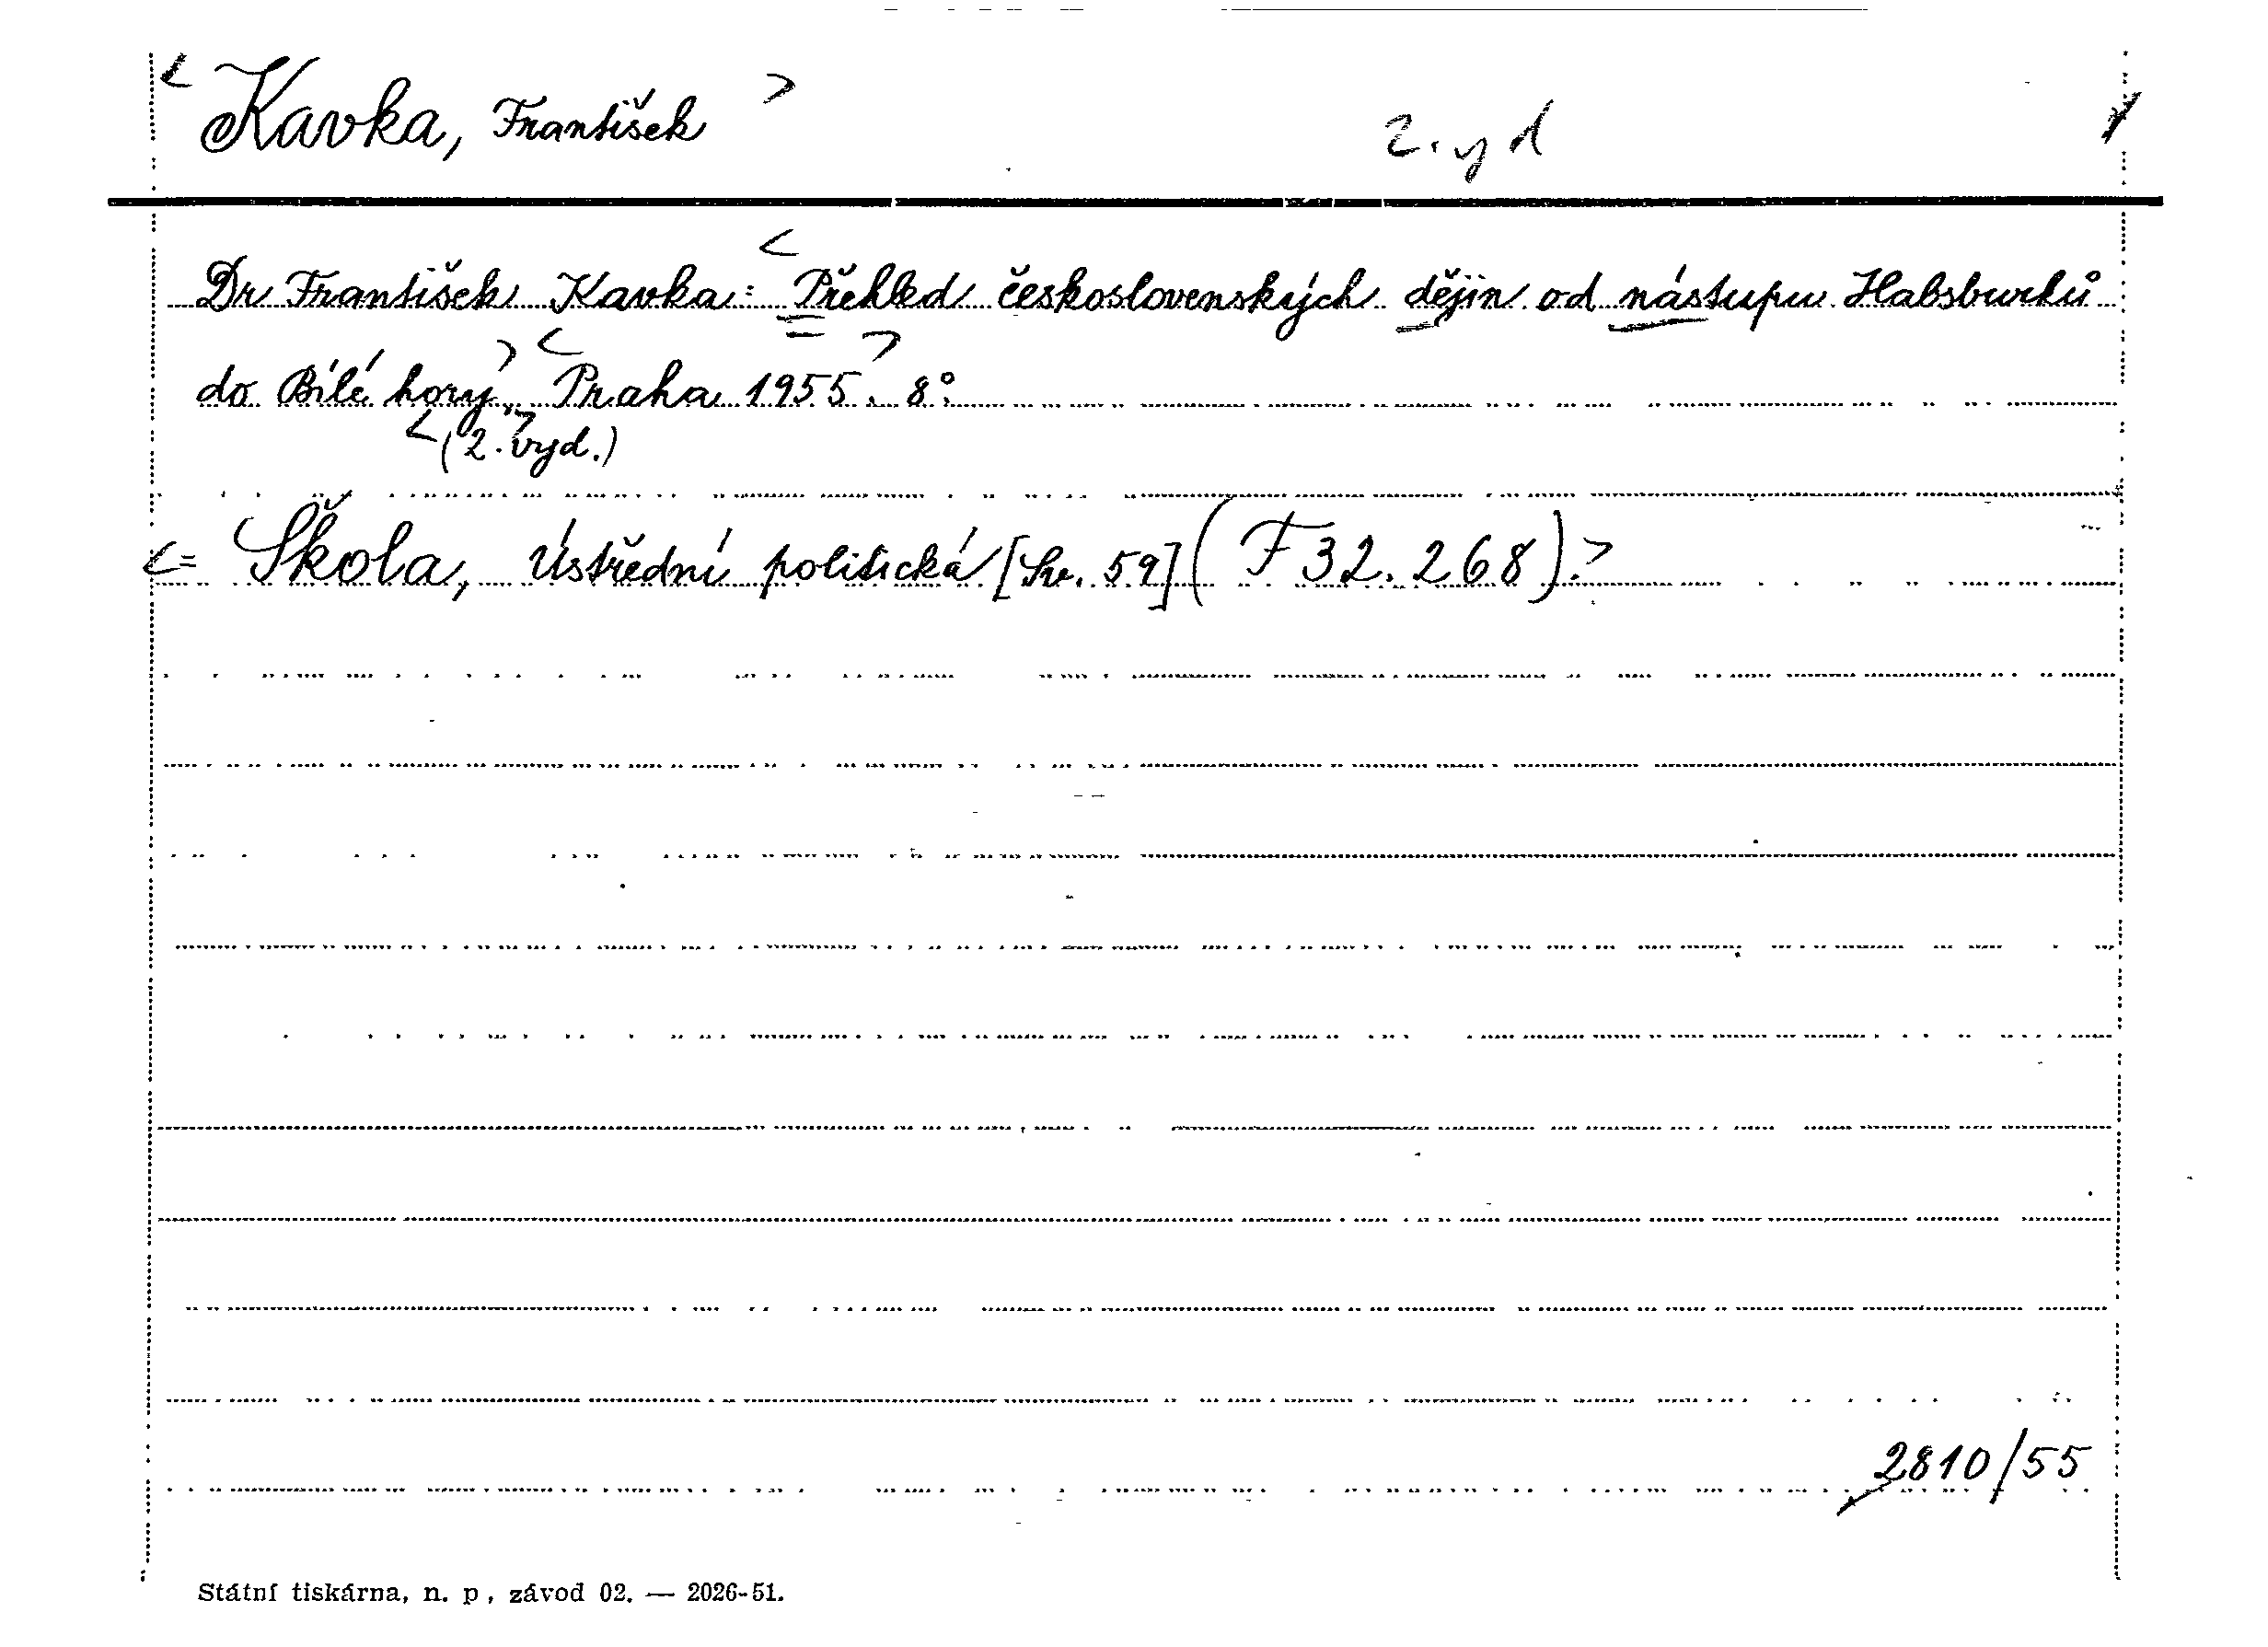 < Kavka, František > 2. yd
Dr František Kavka: < Přehled československých dějin od nástupu Habsburků
do Bílé hory. > < Praha 1955. > 8°.
< (2. vyd.) >
<= Škola, Ústřední politická [Sv. 59] (F 32.268). >
2810/55
Státní tiskárna, n. p., závod 02. — 2026-51.